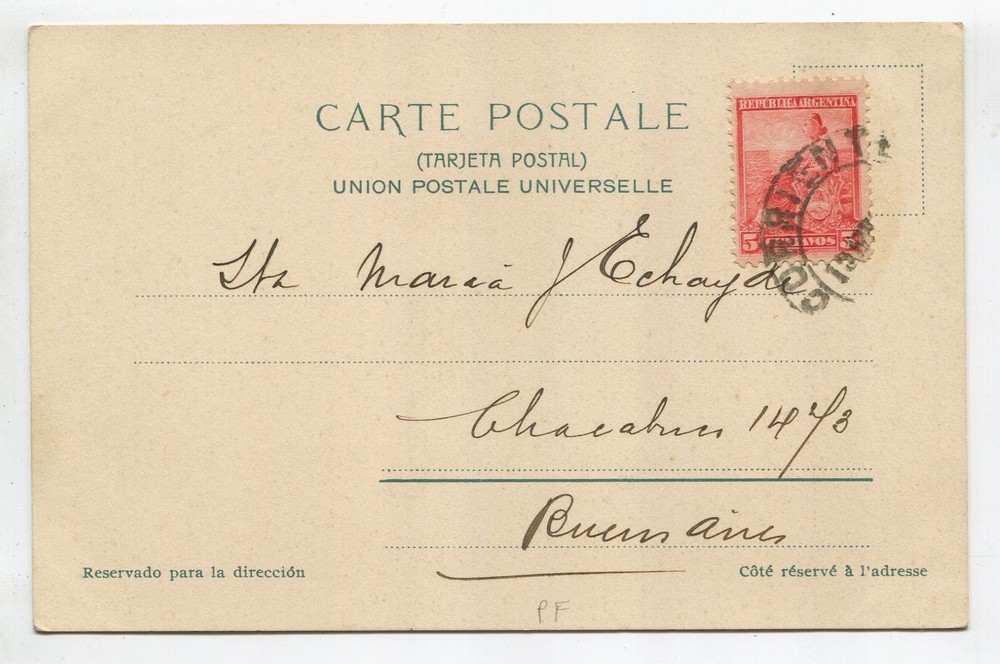 CARTE POSTALE
(TARJETA POSTAL)
UNION POSTALE UNIVERSELLE
REPUBLICA ARGENTINA
5 CENTAVOS 5
CORRIENTES
Sta María J Echayde
Chacabuco 1473
Buenos Aires
Reservado para la dirección
Côté réservé à l'adresse
PF